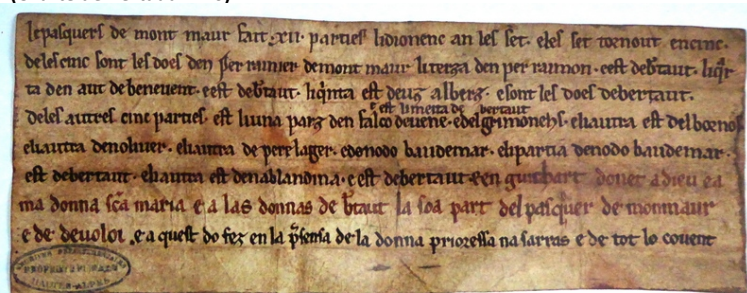 lepasquers de mont maur fait .xii. parties lidionenc an les set. eles set tornout encinc.
deles cinc sont les does den per rainier demont maur literza den per raimon. eest deb̃taut. liqr̃
ta den aut de beneuent. eest deb̃taut. liq̃nta est deuz alberz. esont les does debertaut.
e est limeita de bertaut
deles autres cinc parties. est liuna parz den falco deuene. edel grimonehs. eliautra est delboenos
eliautra denoliuer. eliautra de pere lager. edonodo baudemar. elipartia denodo baudemar.
est debertaut. eliautra est denablandina. e est debertaut. e en guichart donet adieu ea
ma donna sc̃a maria e a las donnas de b̃taut la soa part del pasquer de monmaur
e de deuoloi. e a quest do fez en la p̃sensa de la donna prioressa na sarras e de tot lo couent
HAUTES-ALPES